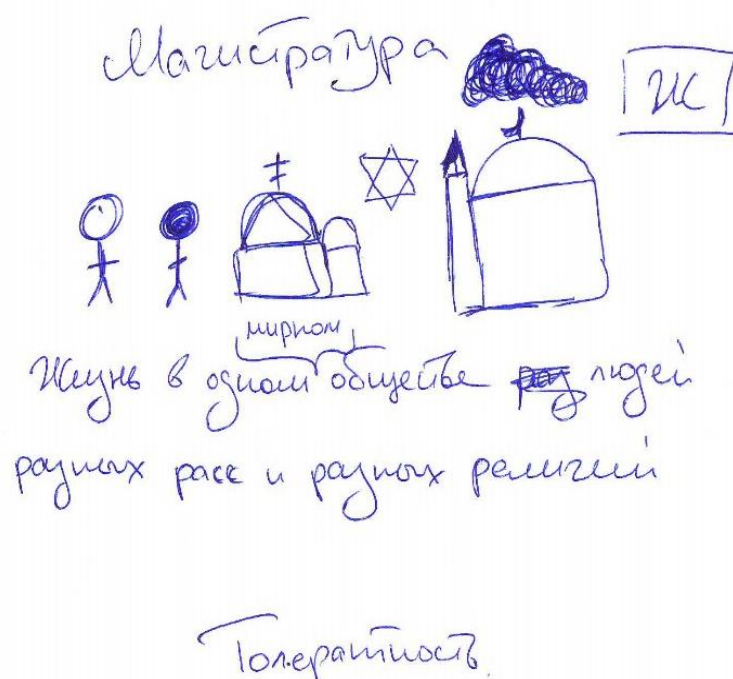 Магистратура
Ж
мирном
Жизнь в одном обществе людей
разных расс и разных религий
Толерантность